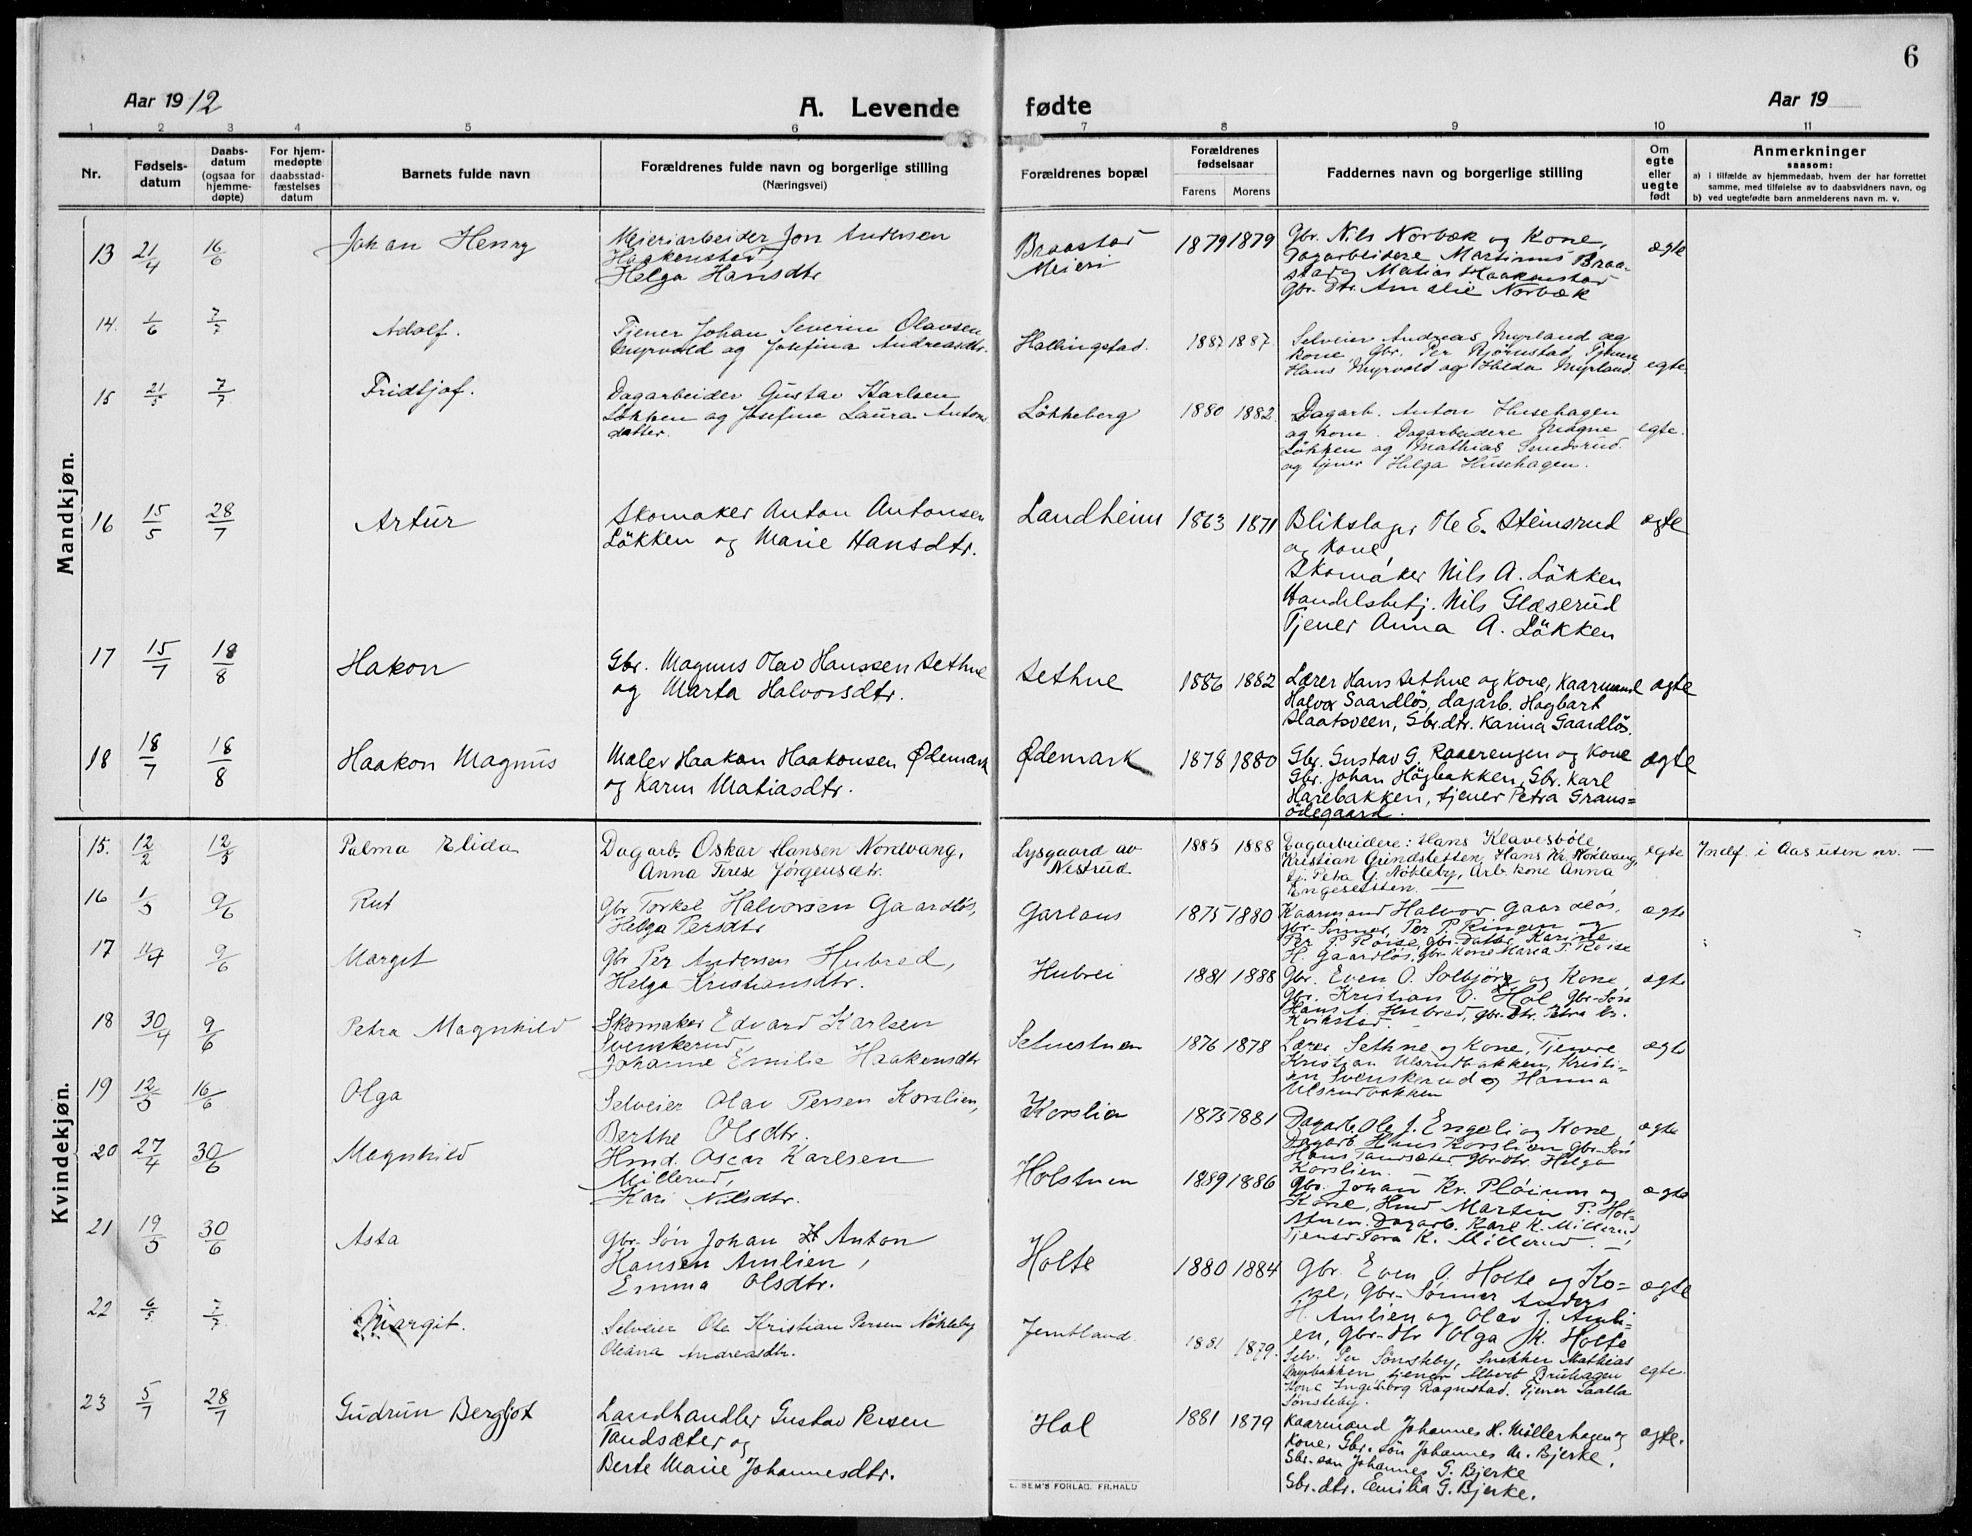 6
Aar 1912
A. Levende fødte
Aar 19
1 2 3 4 5 6 7 8 9 10 11
Nr.
Fødsels-
datum
Daabs-
datum
(ogsaa for
hjemme-
døpte)
For hjem-
medøpte
daabsstad-
fæstelses
datum
Barnets fulde navn
Forældrenes fulde navn og borgerlige stilling
(Næringsvei)
Forældrenes bopæl
Forældrenes
fødselsaar
Farens Morens
Faddernes navn og borgerlige stilling
Om
egte
eller
uegte
født
Anmerkninger
saasom:
a) i tilfælde av hjemmedaab, hvem der har forrettet
samme, med tilføielse av to daabsvidners navn, og
b) ved uegtefødte barn anmelderens navn m. v.
Mandkjøn.
13 21/4 16/6 Johan Henry
Meieriarbeider Jon Andersen
Haakenstad,
Helga Hansdtr
Braastad
Meieri
1879 1879
Gbr. Nils Norbæk og Kone,
Dagarbeidere Martinus Braa-
stad og Matias Haakenstad
Gbr. dtr. Amalie Norbæk
ægte
14. 1/6 7/7 Adolf.
Tjener Johan Severin Olavsen
Myrvold og Josefina Andreasdtr.
Hallingstad.
1887 1887.
Selveier Andreas Myrland og
kone, Gbr. Per Bjørnstad, Tjenere
Hans Myrvold og Hilda Myrland.
egte.
15 21/5 7/7 Fridtjof.
Dagarbeider Gustav Karlsen
Løkken og Josefine Laura Antons
datter.
Løkkeberg
1880 1882.
Dagarb. Anton Husehagen
og kone. Dagarbeidere Magne
Løkken og Mathias
og tjener Helga Husehagen.
egte.
16 15/5 28/7 Artur
Skomaker Anton Antonsen
Løkken og Marie Hansdtr.
Landheim
1863 1871
Blikslager Ole E. Stensrud
og Kone,
Skomaker Nils A. Løkken
Handelsbetj. Nils Glæserud
Tjener Anna A. Løkken
ægte
17 15/7 18/8 Hakon
Gbr. Magnus Olav Hanssen Sethne
og Marta Halvorsdtr.
Sethne
1886 1882
Lærer Hans Sethne og Kone, Kaarmand
Halvor Gaardløs, dagarb. Hagbart
Slaatsveen, Gbr.dtr. Karina Gaardløs.
ægte
18 18/7 18/8 Haakon Magnus
Maler Haakon Haakonsen Ødemark
og Karin Matiasdtr.
Ødemark
1878 1880
Gbr. Gustav G. Raaerengen og Kone
Gbr. Johan Høgbakken, Gbr. Karl
Harebakken, tjener Petra Graus=
ødegaard.
ægte
Kvindekjøn.
15. 12/2 12/5 Palma Elida
Dagarb. Oskar Hansen Nordvang,
Anna Terese Jørgensdtr.
Lysgaard av
Nestrud
1885 1888
Dagarbeidere: Hans Klavesböle
Kristian Grindstetten, Hans Kr. Nordvang,
tj. Petra G. Nökleby, Arb. kone Anna
Engesetten. —
egte
Indf. i Aas uten nr. —
16 1/5 9/6 Rut
Gbr Torkel Halvorsen Gaardløs,
Helga Persdtr
Garlaus
1875 1880
Kaarmand Halvor Gaardløs,
Gbr-Sønner, Per P. Ringen og
Per P. Roise, gbr-Datter Karine
H. Gaardløs, gbr-kone Maria P. Roise
ægte
17 9/6 Marget
Gbr Per Andersen Hubred,
Helga Kristiansdtr.
Hubrei
1881 1888
Gbr. Even O. Solbjørg og Kone,
Gbr. Kristian O. Hol, Gbr-Søn
Hans A. Hubred, gbr-dtr. Petra Kr.
Kvikstad.
ægte
18 30/4 9/6 Petra Magnhild
Skomaker Edvard Karlsen
Svenskerud,
Johanne Emilie Haakensdtr
Setnestuen
1876 1878
Lærer Sethne og Kone, Tjenere
Kristian Ulsrudbakken, Kristi-
an Svenskerud og Hanna
Ulsrudbakken
ægte
19 12/5 16/6 Olga
Selveier Olav Persen Korslien,
Berthe Olsdtr.
Korslien
1875 1881
Dagarb. Ole J. Engeli og Kone
Dagarb. Hans Korslien, Gbr-Søn
Hans Tandsæter, gbr-dtr. Helga
Korslien.
ægte
20 27/4 30/6 Magnhild
Hmd. Oscar Karlsen
Millerud,
Kari Nilsdtr.
Holstuen
1889 1886
Gbr. Johan Kr. Pløium og
Kone, Hmd Martin P. Hol-
stuen. Dagarb. Karl K. Millerud,
Tjener Tora K. Millerud. —
ægte
21 19/5 30/6 Asta
Gbr. Søn Johan Anton
Hansen Amlien,
Emma Olsdtr.
Holte
1880 1884
Gbr. Even O. Holte og Ko-
ne, Gbr-Sønner Anders
H. Amlien og Olav J. Amli-
en, gbr-dtr Olga K. Holte
ægte
22 6/5 7/7 Margit.
Selveier Ole Kristian Persen Nökleby
Oleana Andreasdtr.
Jemtland.
1881 1879.
Selv. Per Sønsteby, Snekker Mathias
Myrbakken, tjener Albert Bruhagen
Kone Ingeborg Ragnstad. Tjener Paula
Sønsteby.
egte.
23 5/7 28/7 Gudrun Bergljot
Landhandler Gustav Persen
Tandsæter og
Berte Marie Johannesdtr.
Hol
1881 1879
Kaarmand Johannes H. Møllerhagen og
Kone, Gbr.-søn Johannes M. Bjerke,
Gbr-søn Johannes G. Bjerke
Gbr.-dtr. Emilia G. Bjerke.
ægte.
SEM'S FORLAG, FR.HALD